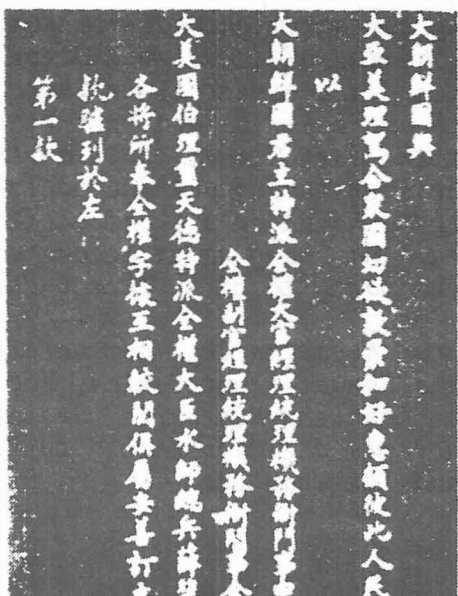 大朝鮮國與
大亞美理駕合衆國切欲敦崇和好惠顧彼此人民
以
大朝鮮國君主特派全權大官經理統理機務衙門事申
全權副官經理統理機務衙門事金
大美國伯理璽天德特派全權大臣水師總兵薛斐
各將所奉全權字據互相較閱俱屬妥善訂立
款臚列於左
第一款